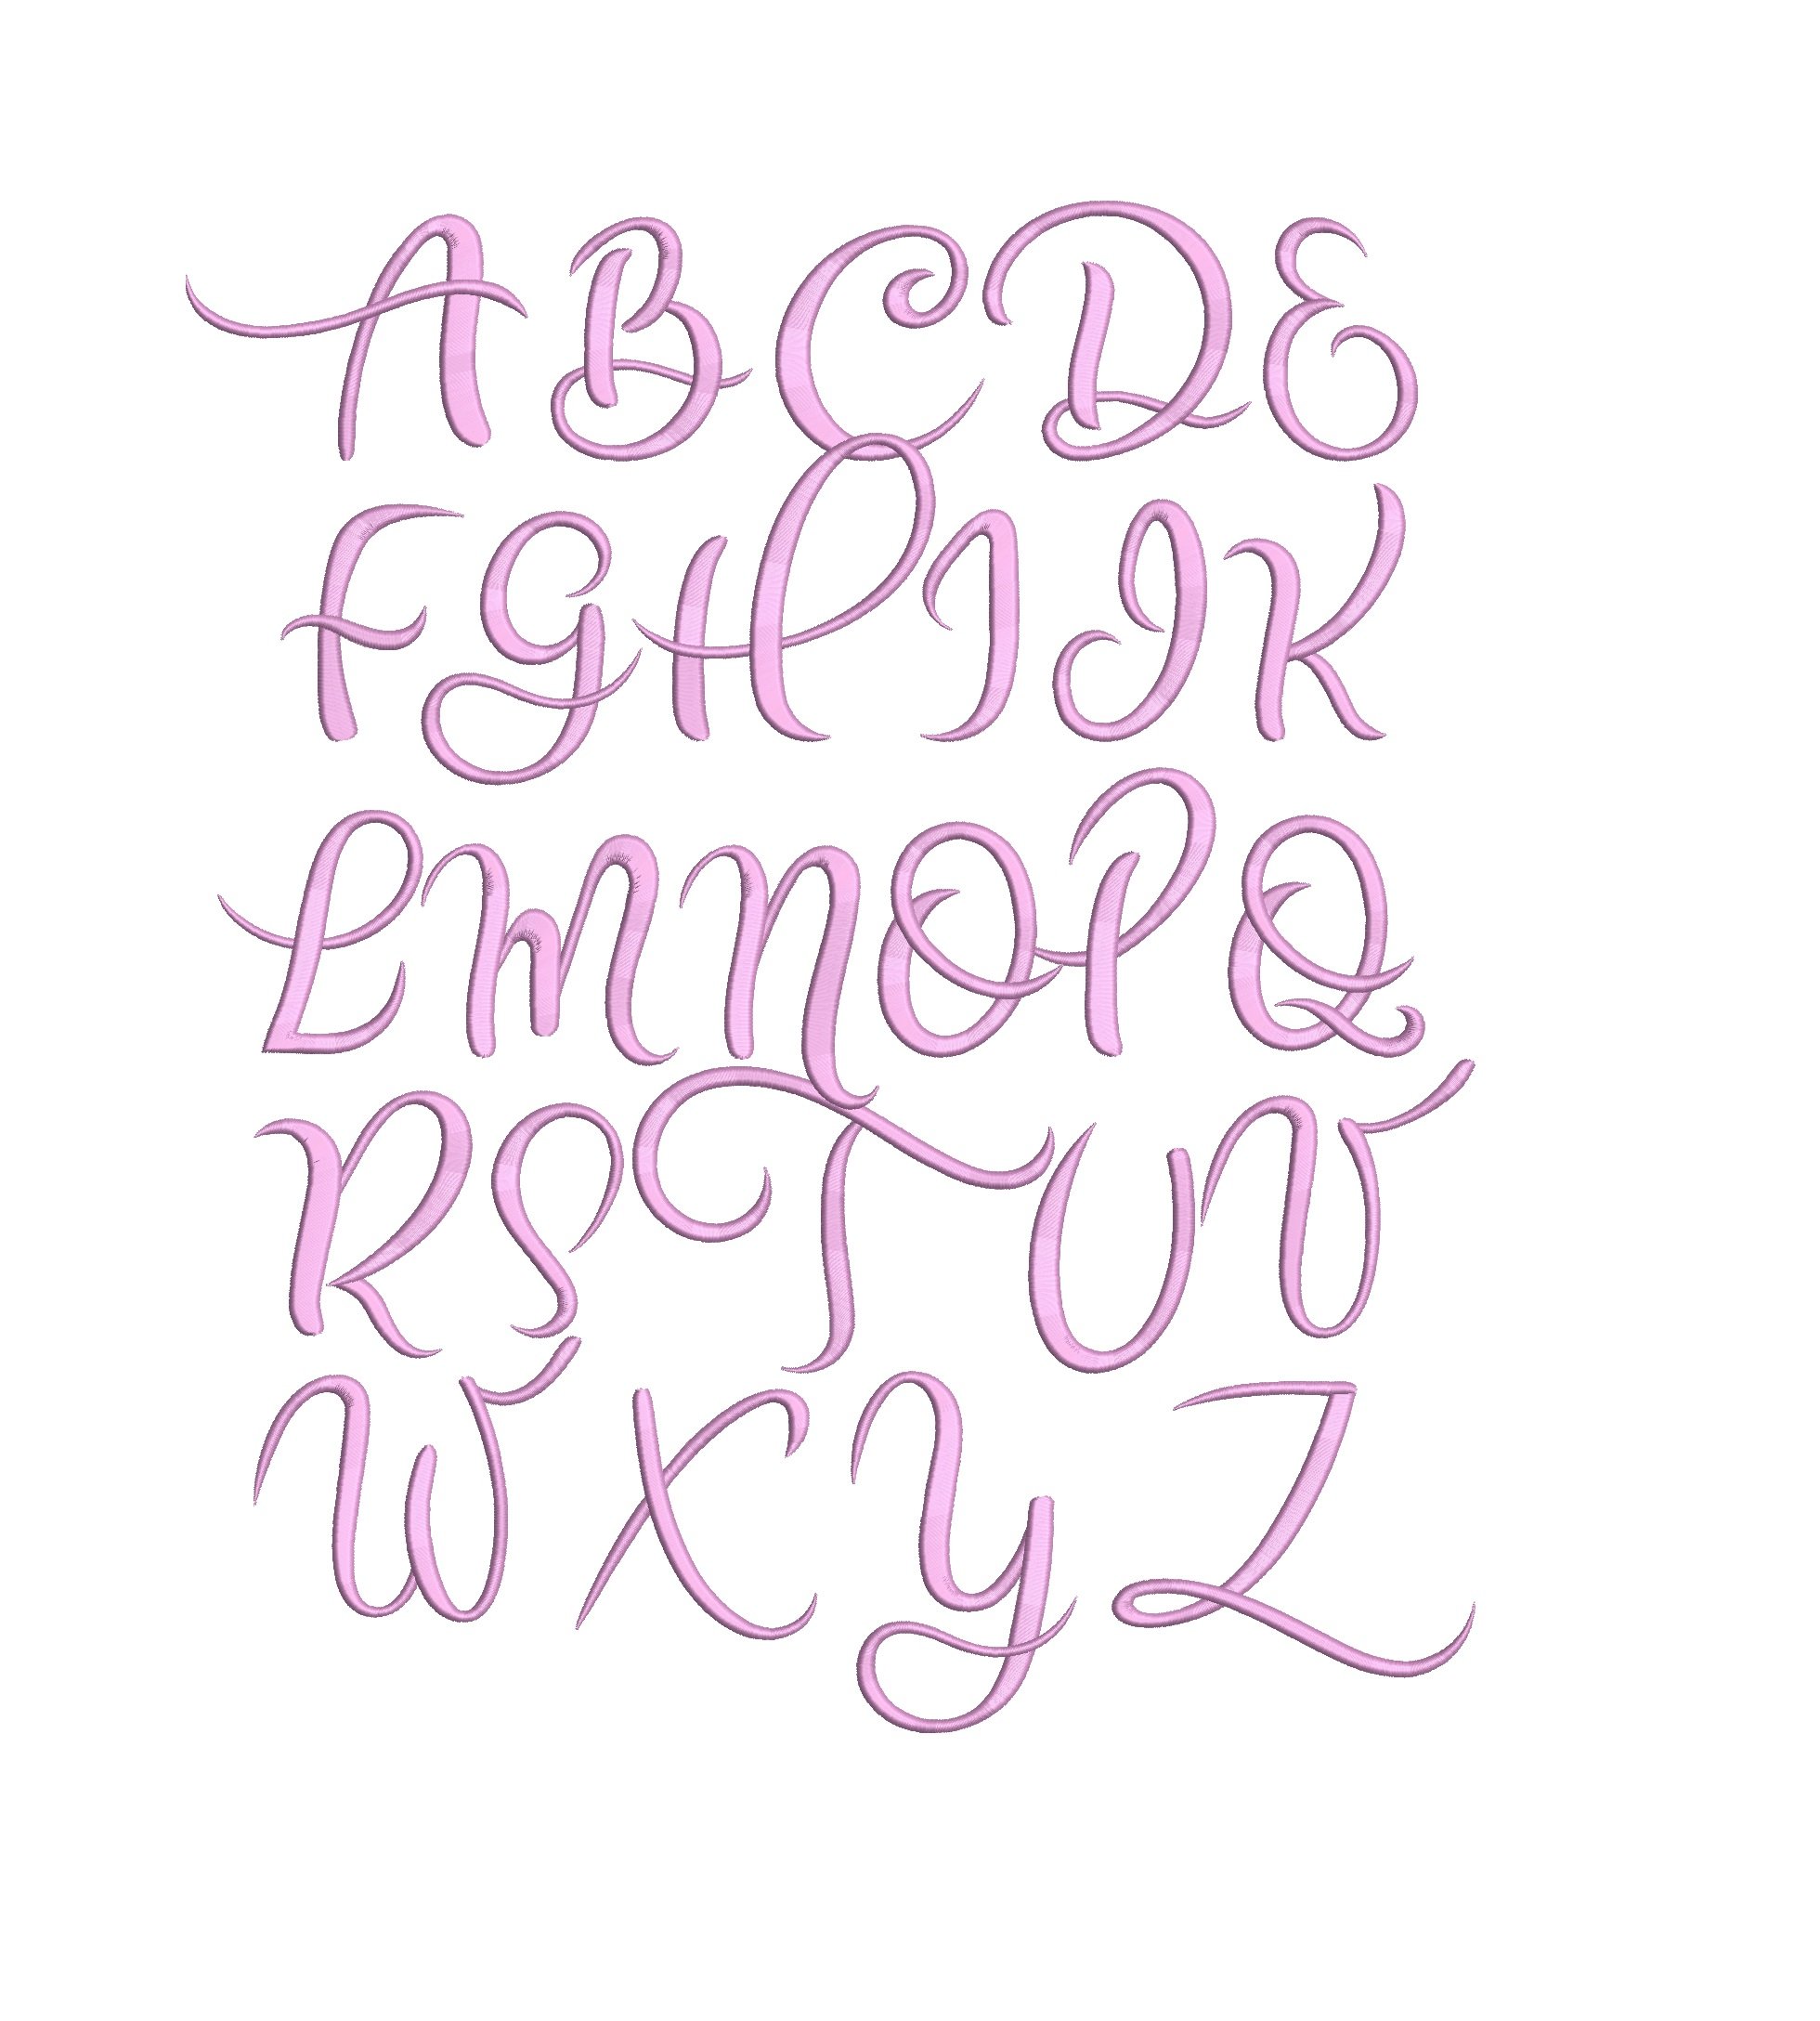 A B C D E
F G H I J K
L M N O P Q
R S T U V
W X Y Z